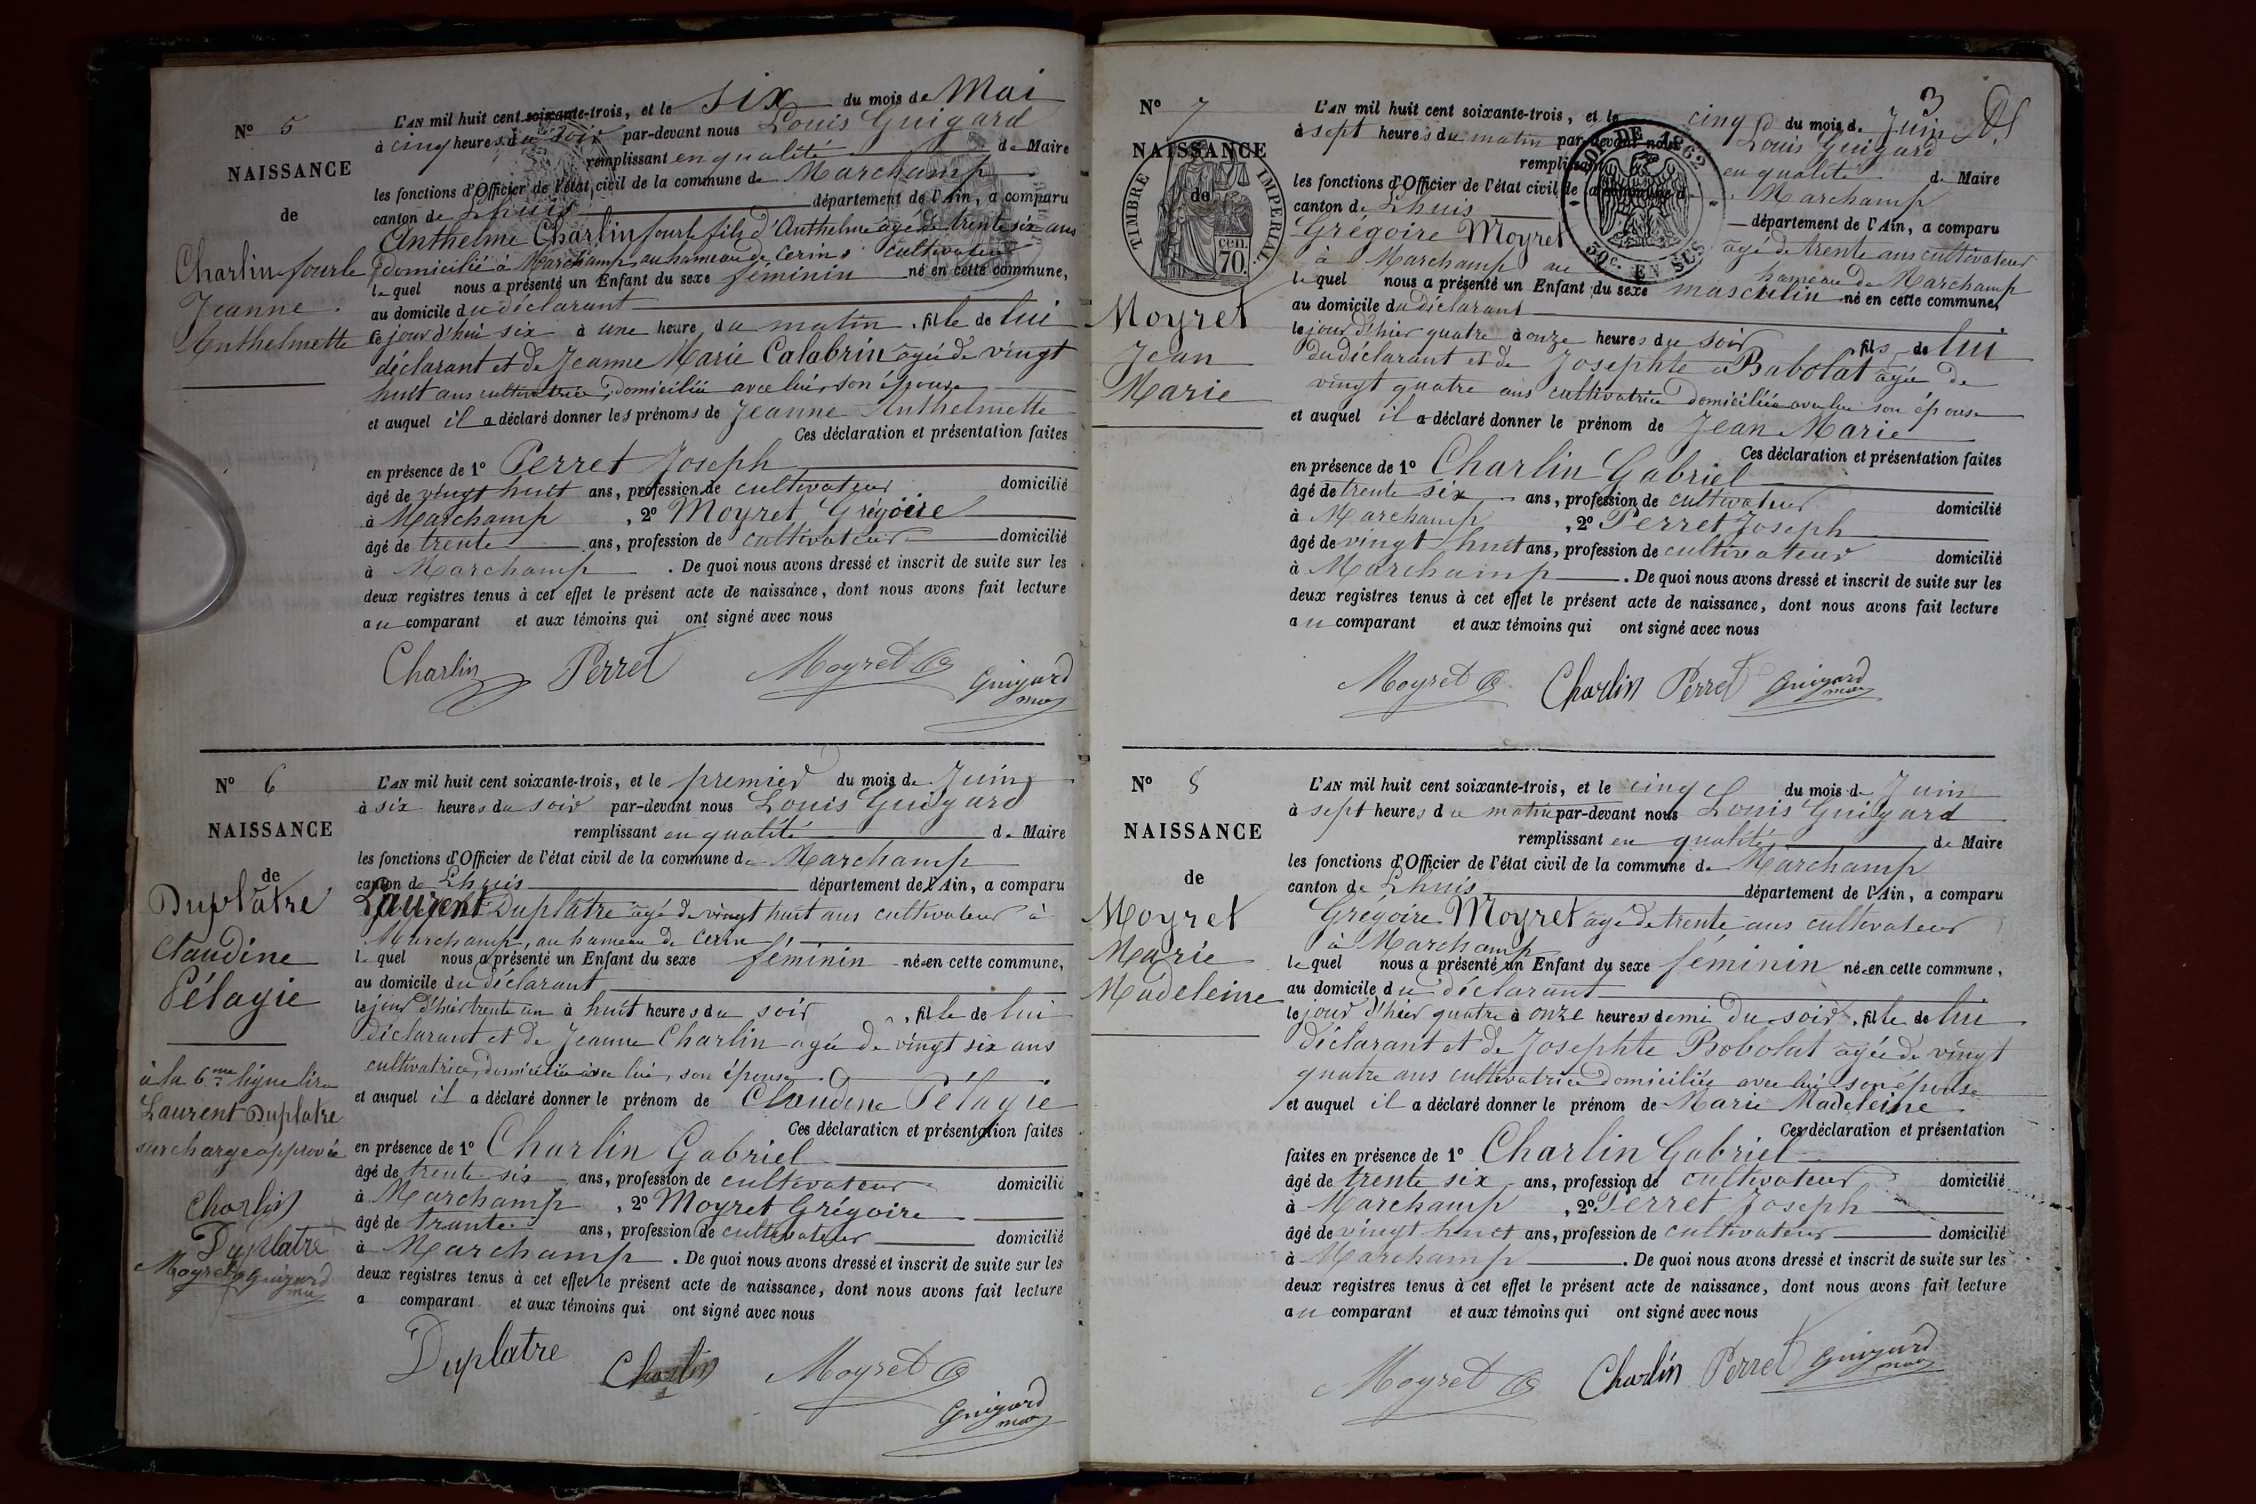 N° 5
NAISSANCE
de
Charlin fourle
Jeanne
Anthelmette
L'AN mil huit cent soixante-trois, et le six du mois de Mai
à cinq heures du soir par-devant nous Louis Guigard
remplissant en qualité de Maire
les fonctions d'Officier de l'état civil de la commune de Marchamp
canton de Lhuis département de l'Ain, a comparu
Anthelme Charlin fourle fils d'Anthelme âgé de trente six ans
domicilié à Marchamp au hameau de Cerin cultivateur
lequel nous a présenté un Enfant du sexe féminin né en cette commune,
au domicile du déclarant
ce jour d'hui six à une heure du matin, fille de lui
déclarant et de Jeanne Marie Calabrin âgée de vingt
huit ans cultivatrice, domiciliée avec lui, son épouse
et auquel il a déclaré donner les prénoms de Jeanne Anthelmette
Ces déclaration et présentation faites
en présence de 1° Perret Joseph
âgé de vingt huit ans, profession de cultivateur domicilié
à Marchamp, 2° Moyret Grégoire
âgé de trente ans, profession de cultivateur domicilié
à Marchamp. De quoi nous avons dressé et inscrit de suite sur les
deux registres tenus à cet effet le présent acte de naissance, dont nous avons fait lecture
au comparant et aux témoins qui ont signé avec nous
Charlin Perret Moyret G Guigard
maire
N° 6
NAISSANCE
de
Duplâtre
Claudine
Pélagie
à la 6me ligne lire
Laurent Duplatre
surcharge approuvée
Charlin
Duplatre
Moyret G Guigard
L'AN mil huit cent soixante-trois, et le premier du mois de Juin
à six heures du soir par-devant nous Louis Guigard
remplissant en qualité de Maire
les fonctions d'Officier de l'état civil de la commune de Marchamp
canton de Lhuis département de l'Ain, a comparu
Laurent Duplatre âgé de vingt huit ans cultivateur à
Marchamp, au hameau de Cerin
lequel nous a présenté un Enfant du sexe féminin née en cette commune,
au domicile du déclarant
le jour d'hier trente un à huit heures du soir, fille de lui
déclarant et de Jeanne Charlin agée de vingt six ans
cultivatrice, domiciliée avec lui, son épouse
et auquel il a déclaré donner le prénom de Claudine Pélagie
Ces déclaration et présentation faites
en présence de 1° Charlin Gabriel
âgé de trente six ans, profession de cultivateur domicilié
à Marchamp, 2° Moyret Grégoire
âgé de trente ans, profession de cultivateur domicilié
à Marchamp. De quoi nous avons dressé et inscrit de suite sur les
deux registres tenus à cet effet le présent acte de naissance, dont nous avons fait lecture
a comparant et aux témoins qui ont signé avec nous
Duplatre Charlin Moyret G
Guigard
maire
3
N° 7
NAISSANCE
de
TIMBRE IMPERIAL
70 cen.
Moyret
Jean
Marie
LOI DE 1862
50c. EN SUS
L'AN mil huit cent soixante-trois, et le cinq du mois de Juin
à sept heures du matin par-devant nous Louis Guigard
remplissant en qualité de Maire
les fonctions d'Officier de l'état civil de la commune de Marchamp
canton de Lhuis département de l'Ain, a comparu
Grégoire Moyret âgé de trente ans cultivateur
à Marchamp au hameau de Marchamp
lequel nous a présenté un Enfant du sexe masculin né en cette commune,
au domicile du déclarant
le jour d'hier quatre à onze heures du soir fils de lui
du déclarant et de Josephte Bobolat âgée de
vingt quatre ans cultivatrice domiciliée avec lui son épouse
et auquel il a déclaré donner le prénom de Jean Marie
Ces déclaration et présentation faites
en présence de 1° Charlin Gabriel
âgé de trente six ans, profession de cultivateur domicilié
à Marchamp, 2° Perret Joseph
âgé de vingt huit ans, profession de cultivateur domicilié
à Marchamp. De quoi nous avons dressé et inscrit de suite sur les
deux registres tenus à cet effet le présent acte de naissance, dont nous avons fait lecture
au comparant et aux témoins qui ont signé avec nous
Moyret G Charlin Perret Guigard
maire
N° 8
NAISSANCE
de
Moyret
Marie
Madeleine
L'AN mil huit cent soixante-trois, et le cinq du mois de Juin
à sept heures du matin par-devant nous Louis Guigard
remplissant en qualité de Maire
les fonctions d'Officier de l'état civil de la commune de Marchamp
canton de Lhuis département de l'Ain, a comparu
Grégoire Moyret âgé de trente ans cultivateur
à Marchamp
lequel nous a présenté un Enfant du sexe féminin née en cette commune,
au domicile du déclarant
le jour d'hier quatre à onze heures demi du soir, fille de lui
déclarant et de Josephte Bobolat âgée de vingt
quatre ans cultivatrice domiciliée avec lui son épouse
et auquel il a déclaré donner le prénom de Marie Madeleine
Ces déclaration et présentation
faites en présence de 1° Charlin Gabriel
âgé de trente six ans, profession de cultivateur domicilié
à Marchamp, 2° Perret Joseph
âgé de vingt huit ans, profession de cultivateur domicilié
à Marchamp. De quoi nous avons dressé et inscrit de suite sur les
deux registres tenus à cet effet le présent acte de naissance, dont nous avons fait lecture
au comparant et aux témoins qui ont signé avec nous
Moyret G Charlin Perret Guigard
maire